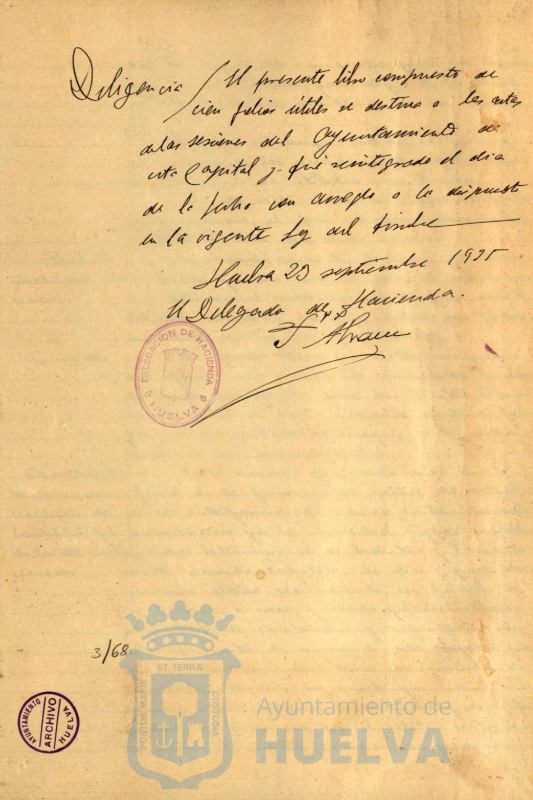 Diligencia / El presente libro compuesto de
cien folios útiles se destina a las actas
de las sesiones del Ayuntamiento de
esta Capital y fué reintegrado el dia
de la fecha con arreglo a lo dispuesto
en la vigente Ley del timbre
Huelva 23 septiembre 1935
El Delegado de Hacienda.
P.D.
DELEGACION DE HACIENDA
HUELVA
3/68
PORTUS MARIS ET TERRÆ CUSTODIA
AYUNTAMIENTO
ARCHIVO
HUELVA
Ayuntamiento de
HUELVA